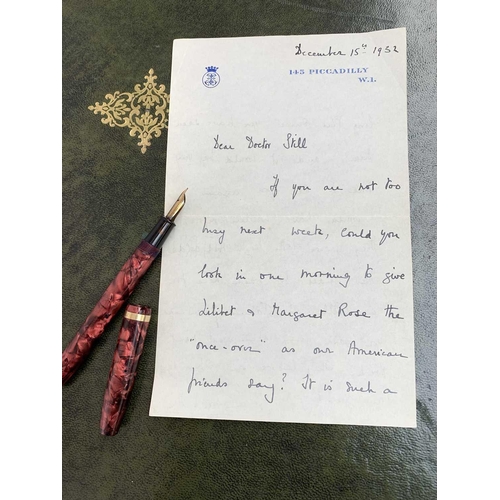 December 15th 1932
145 PICCADILLY
W.1.
Dear Doctor Still
If you are not too
busy next week, could you
look in one morning to give
Lilibet & Margaret Rose the
"once-over" as our American
friends say? It is such a